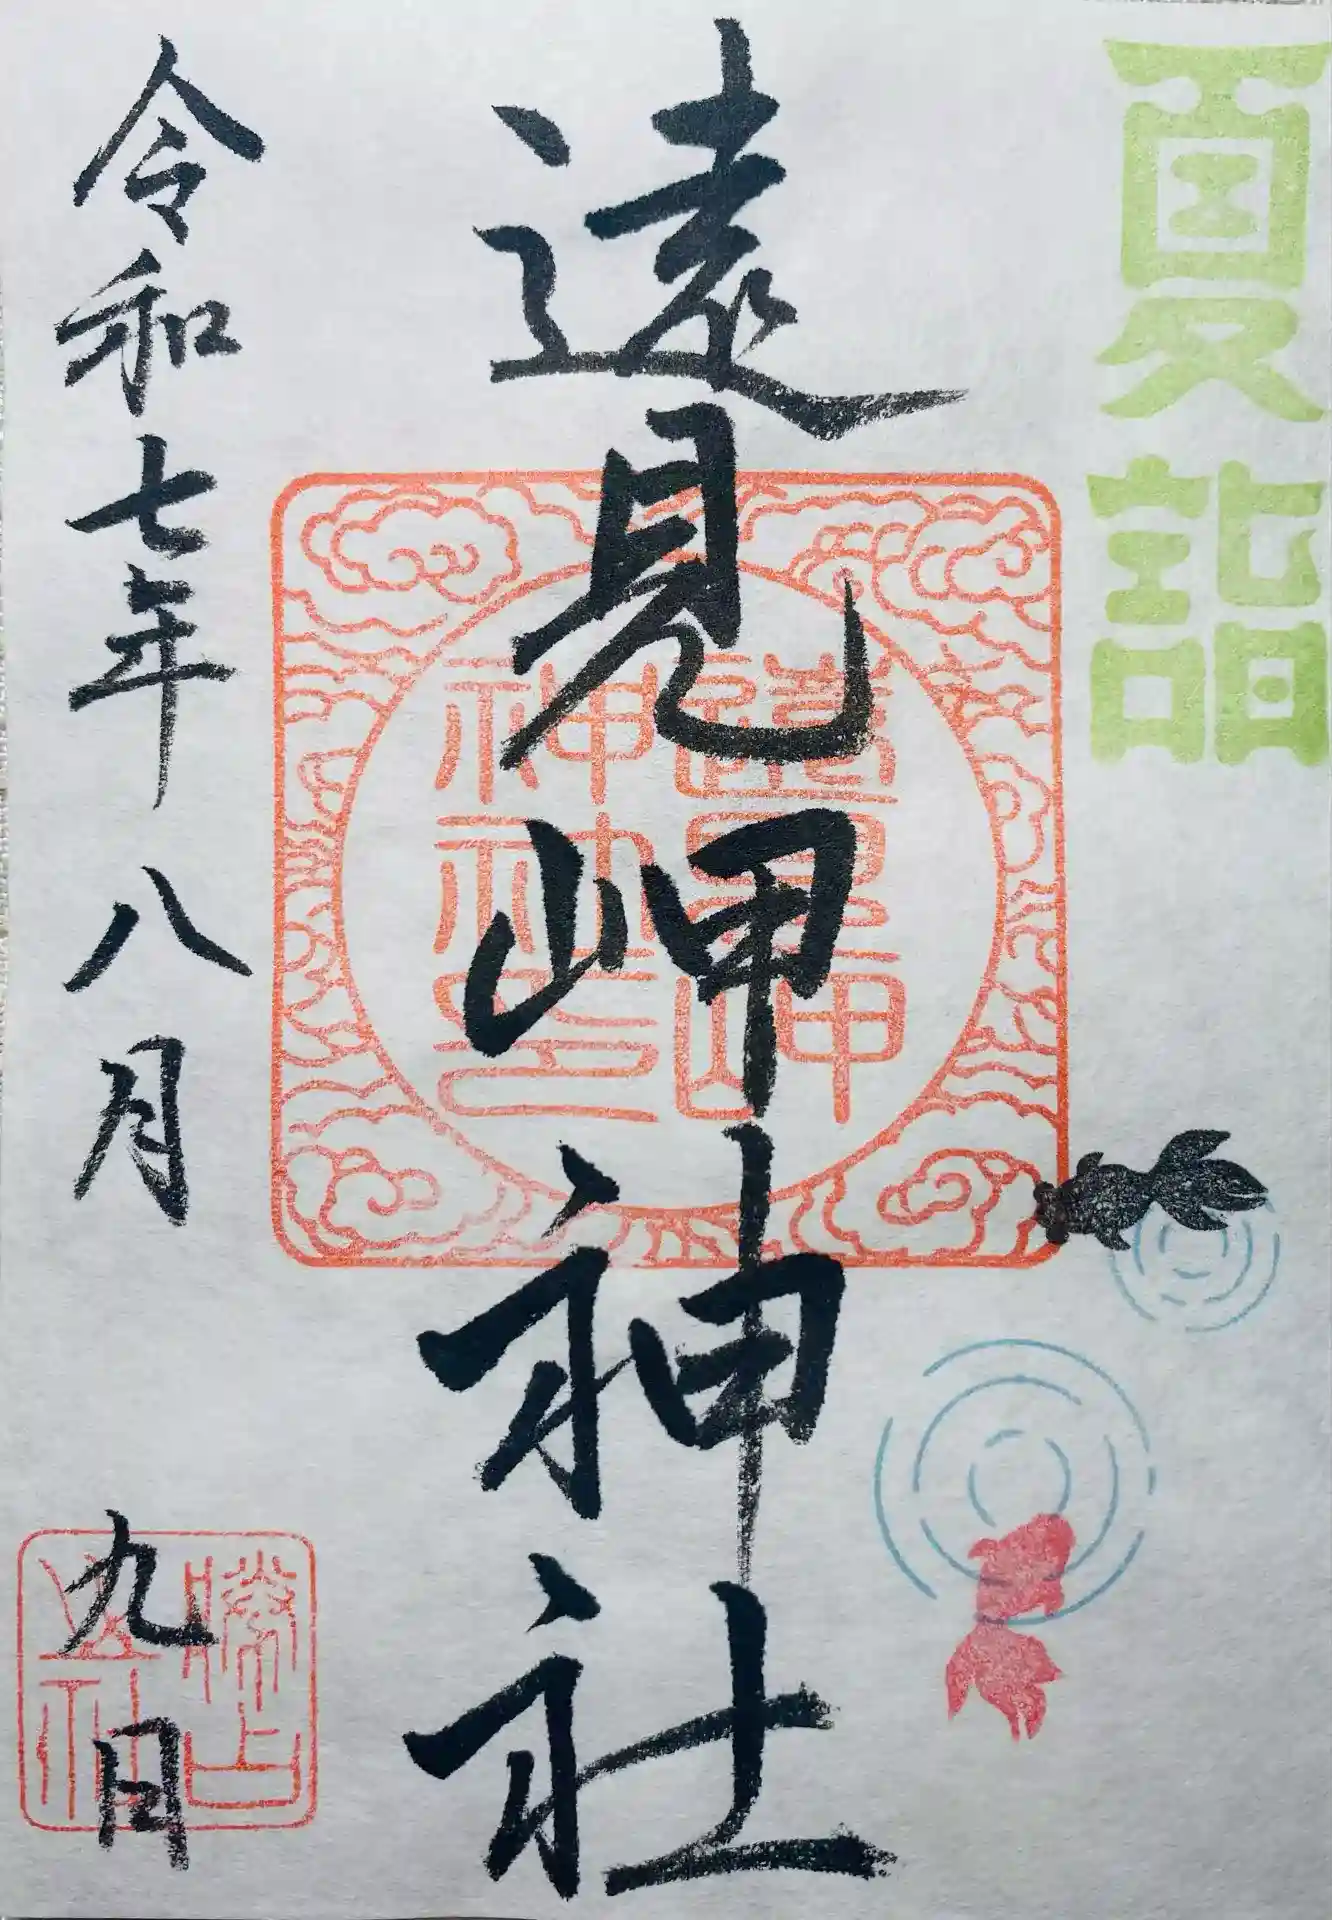 夏詣
遠見岬神社
遠見岬
神社之印
令和七年八月九日